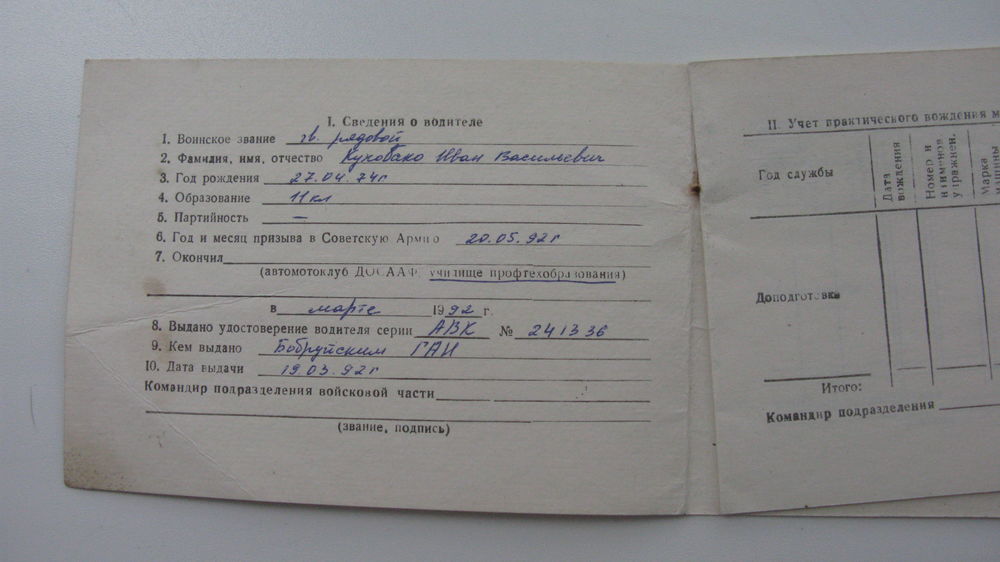 I. Сведения о водителе
1. Воинское звание гв. рядовой
2. Фамилия, имя, отчество Кухобако Иван Васильевич
3. Год рождения 27.04.74г
4. Образование 11кл
5. Партийность —
6. Год и месяц призыва в Советскую Армию 20.05.92г
7. Окончил
(автомотоклуб ДОСААФ, училище профтехобразования)
в марте 1992 г.
8. Выдано удостоверение водителя серии АВК № 241336
9. Кем выдано Бобруйским ГАИ
10. Дата выдачи 19.03.92г
Командир подразделения войсковой части
(звание, подпись)
II. Учет практического вождения м
Год службы
Дата вождения
Номер и наименов. упражнен.
Марка машины
Доподготовка
Итого:
Командир подразделения